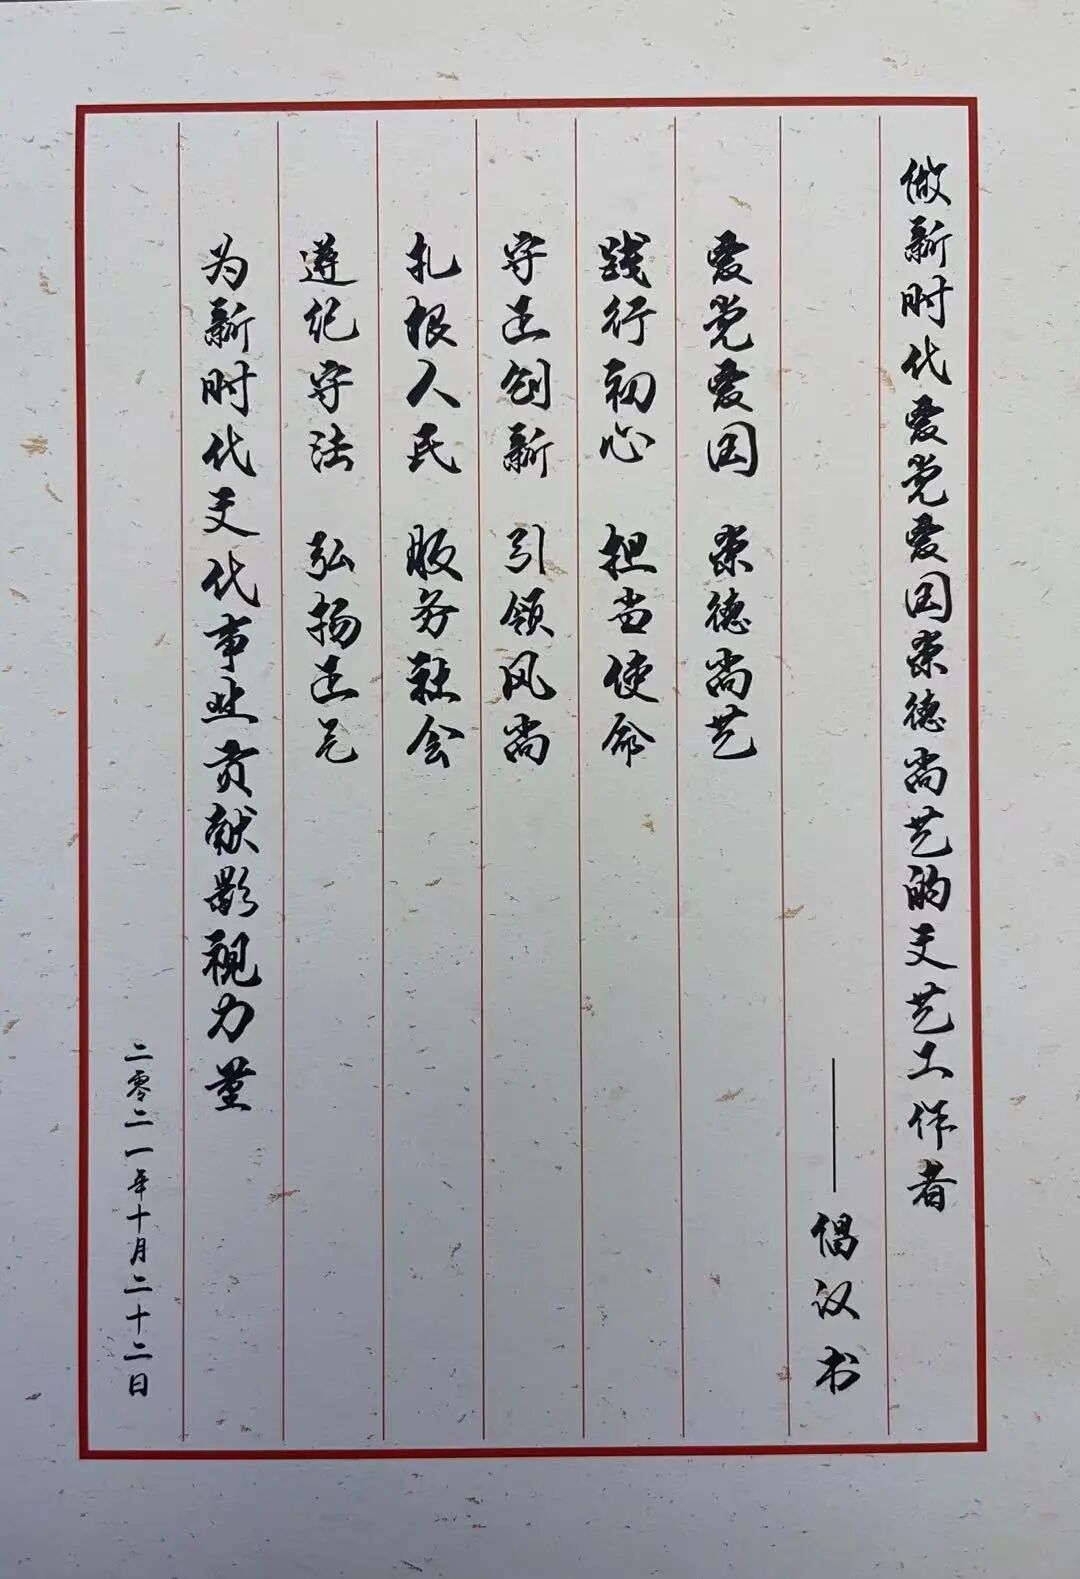 做新时代爱党爱国崇德尚艺的文艺工作者
——倡议书
爱党爱国 崇德尚艺
践行初心 担当使命
守正创新 引领风尚
扎根人民 服务社会
遵纪守法 弘扬正气
为新时代文代事业贡献影视力量
二零二一年十月二十二日